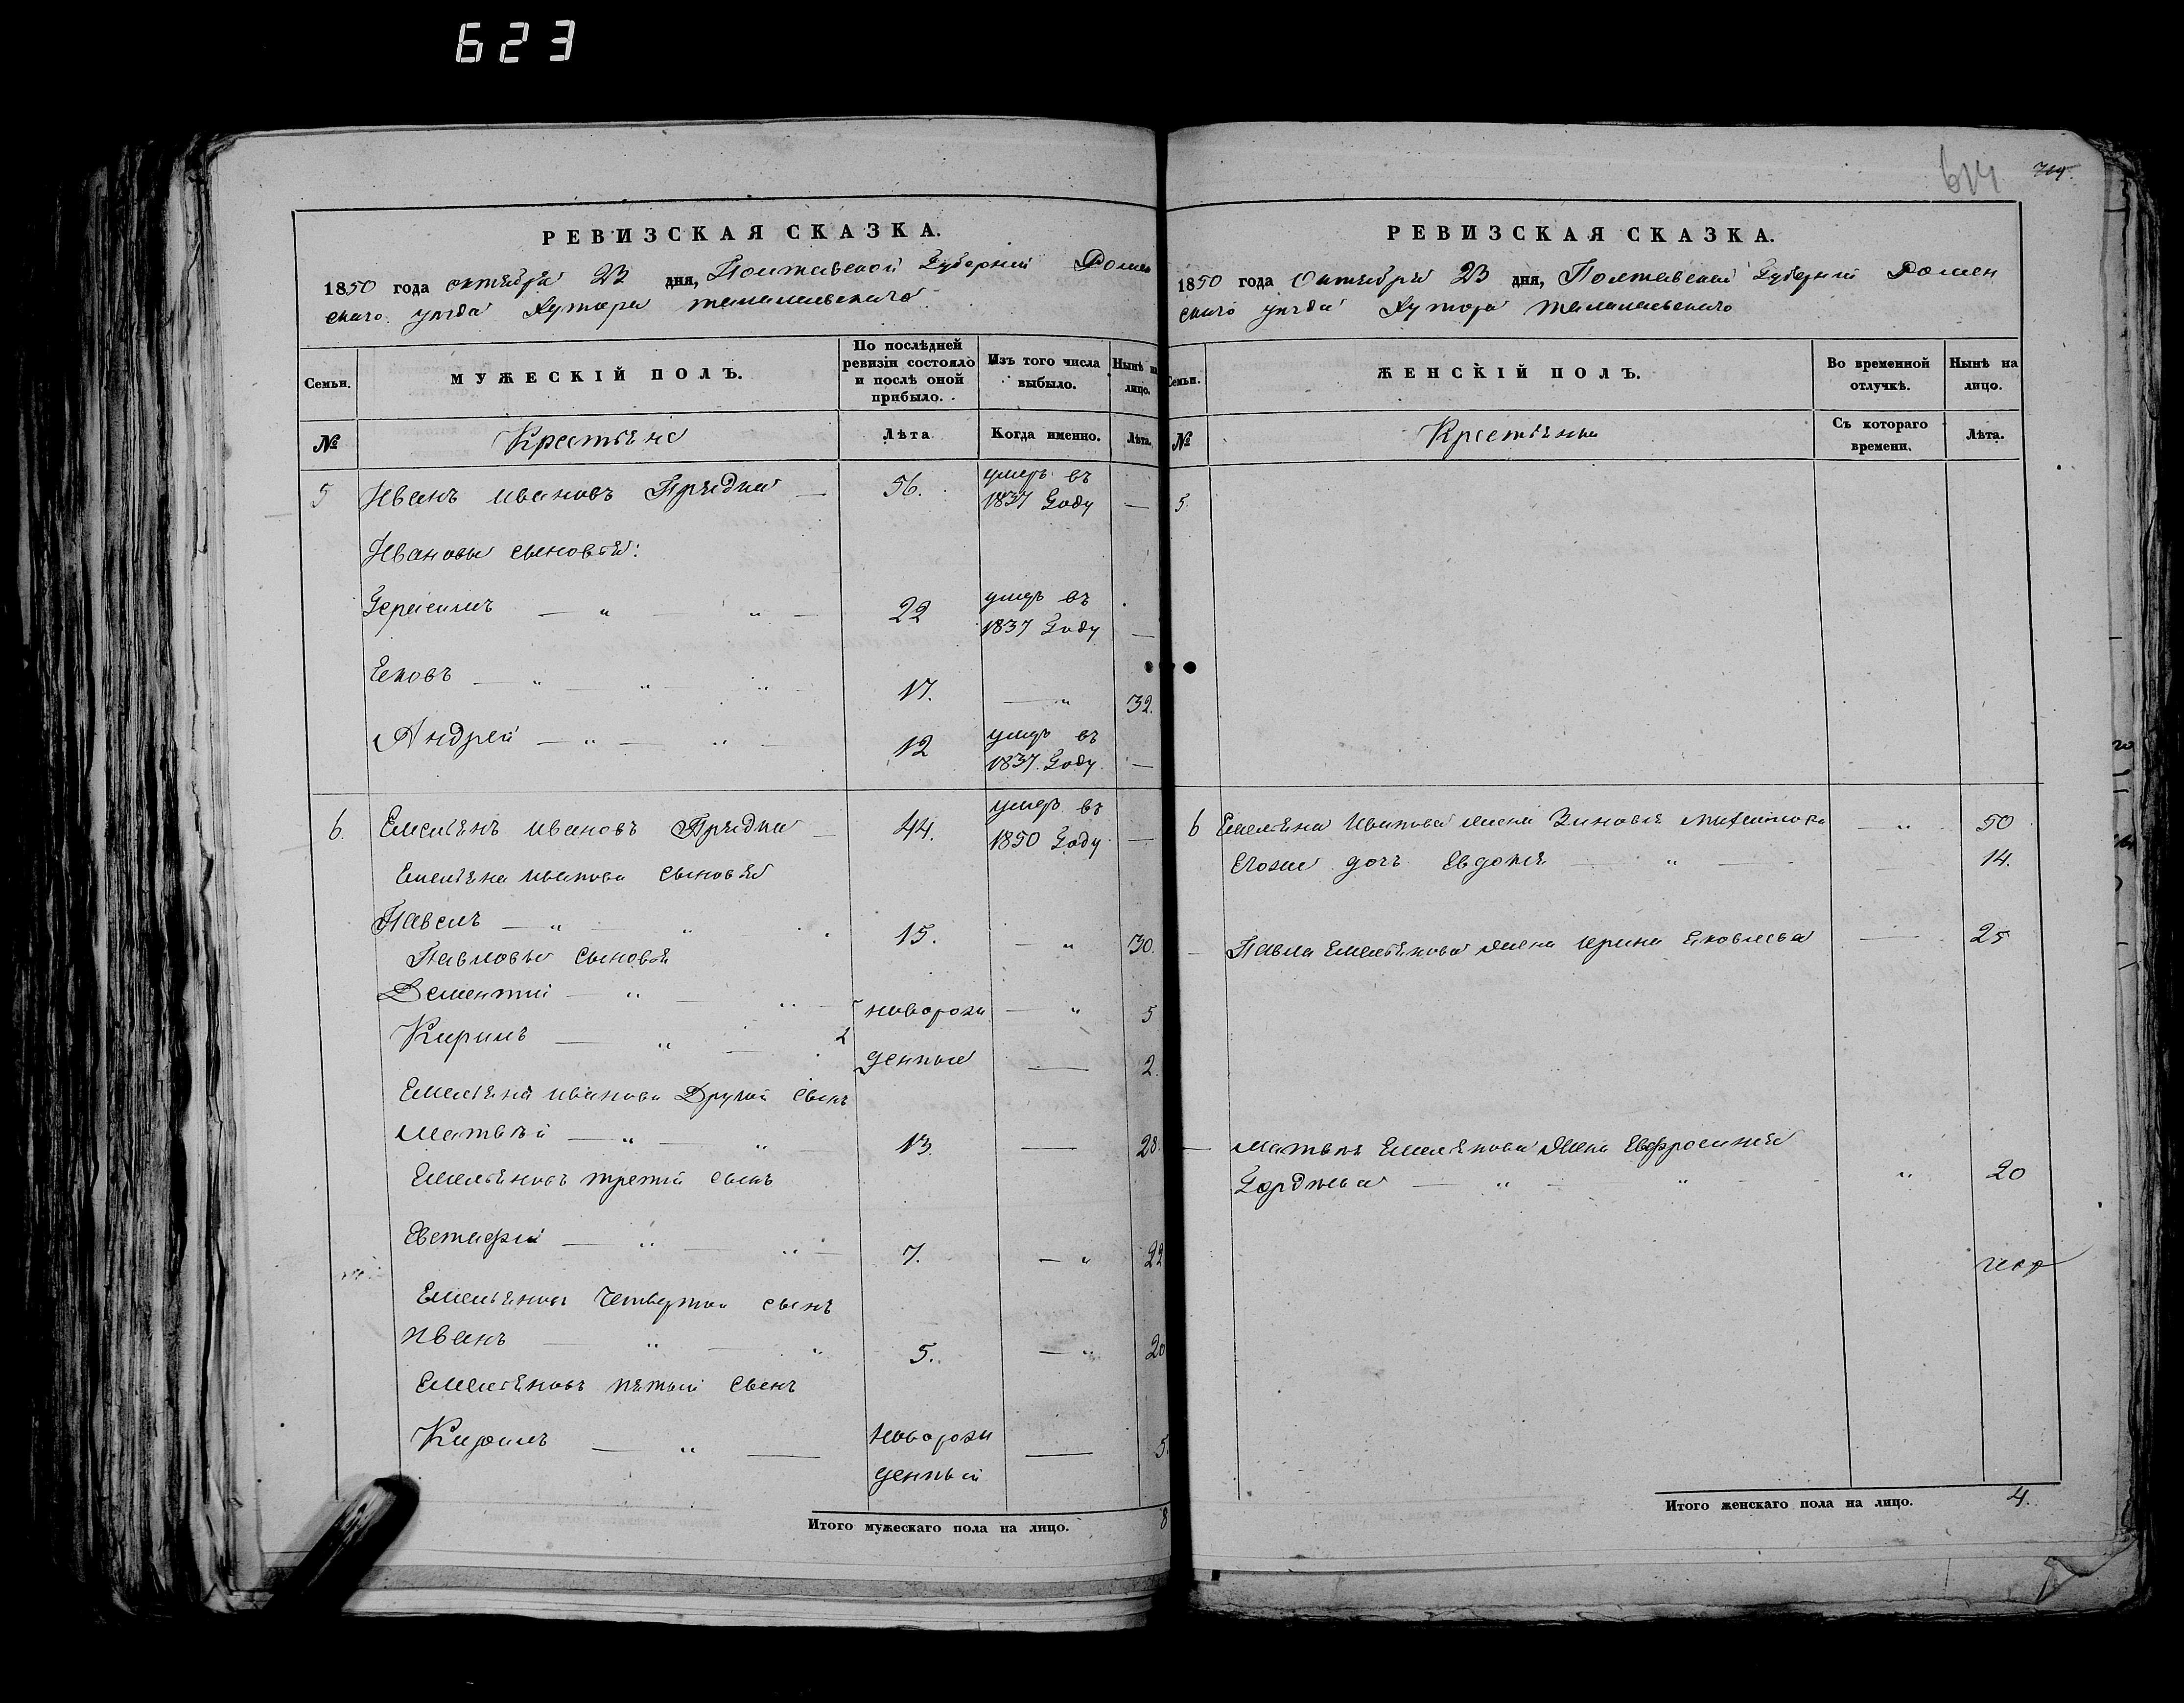 623
614
РЕВИЗСКАЯ СКАЗКА.
1850 года октября 23 дня, Полтавской Губернии Ромен
скаго уезда Хутора
Семьи.
МУЖЕСКІЙ ПОЛЪ.
По послѣдней ревизіи состояло и послѣ оной прибыло.
Изъ того числа выбыло.
Нынѣ на лицо.
№
Крестьяне
Лѣта
Когда именно.
Лѣта.
5 Иванъ Ивановъ Прядка — 56. умеръ въ 1837 Году —
Ивановы сыновья:
Герасимъ — „ — „ — 22 умеръ въ 1837 Году —
Яковъ — „ — „ — „ — 17. — „ 32.
Андрей — „ — „ — 12 умеръ въ 1837 Году. —
6. Емельянъ Ивановъ Прядка — 44. умеръ въ 1850 Году —
Емельяна Иванова сыновья
Павелъ — „ — „ 15. — „ 30.
Павловы сыновья
Дементий — „ — „ — новорож — „ 5
Кирилъ — „ — денные — 2.
Емельяна Иванова Другой сынъ
Матвѣй — „ — „ — 13. — 28.
Емельяновъ третий сынъ
Евстафий — „ — „ — 7. — „ 22
Емельяновъ Четвертой сынъ
Иванъ — „ — „ 5. — „ 20
Емельяновъ пятый сынъ
Кирилъ — „ — новорож
денный — 5.
Итого мужескаго пола на лицо. 8
РЕВИЗСКАЯ СКАЗКА.
1850 года Октября 23 дня, Полтавской Губернии Ромен
скаго уезда Хутора
Семьи.
ЖЕНСКІЙ ПОЛЪ.
Во временной отлучкѣ.
Нынѣ на лицо.
№
Крестьянки
Съ котораго времени.
Лѣта.
5
6 Емельяна Иванова жена Зиновья — „ 50
Егоже дочь Евдокия — „ — 14.
— Павла Емельянова жена Ирина Яковлева — 25
— Матвѣя Емельянова жена Евфросиния
Гордѣева — „ — „ — „ 20
Итого женскаго пола на лицо. 4.